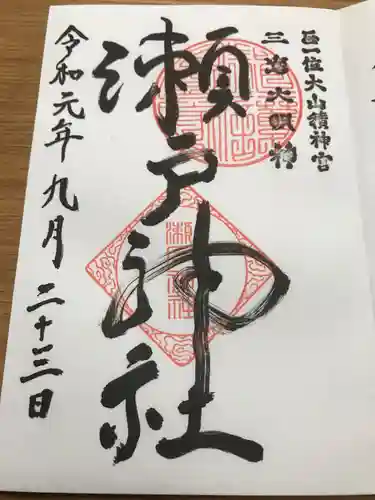 正一位大山積神宮
三島大明神
瀬戸神社
令和元年九月二十三日